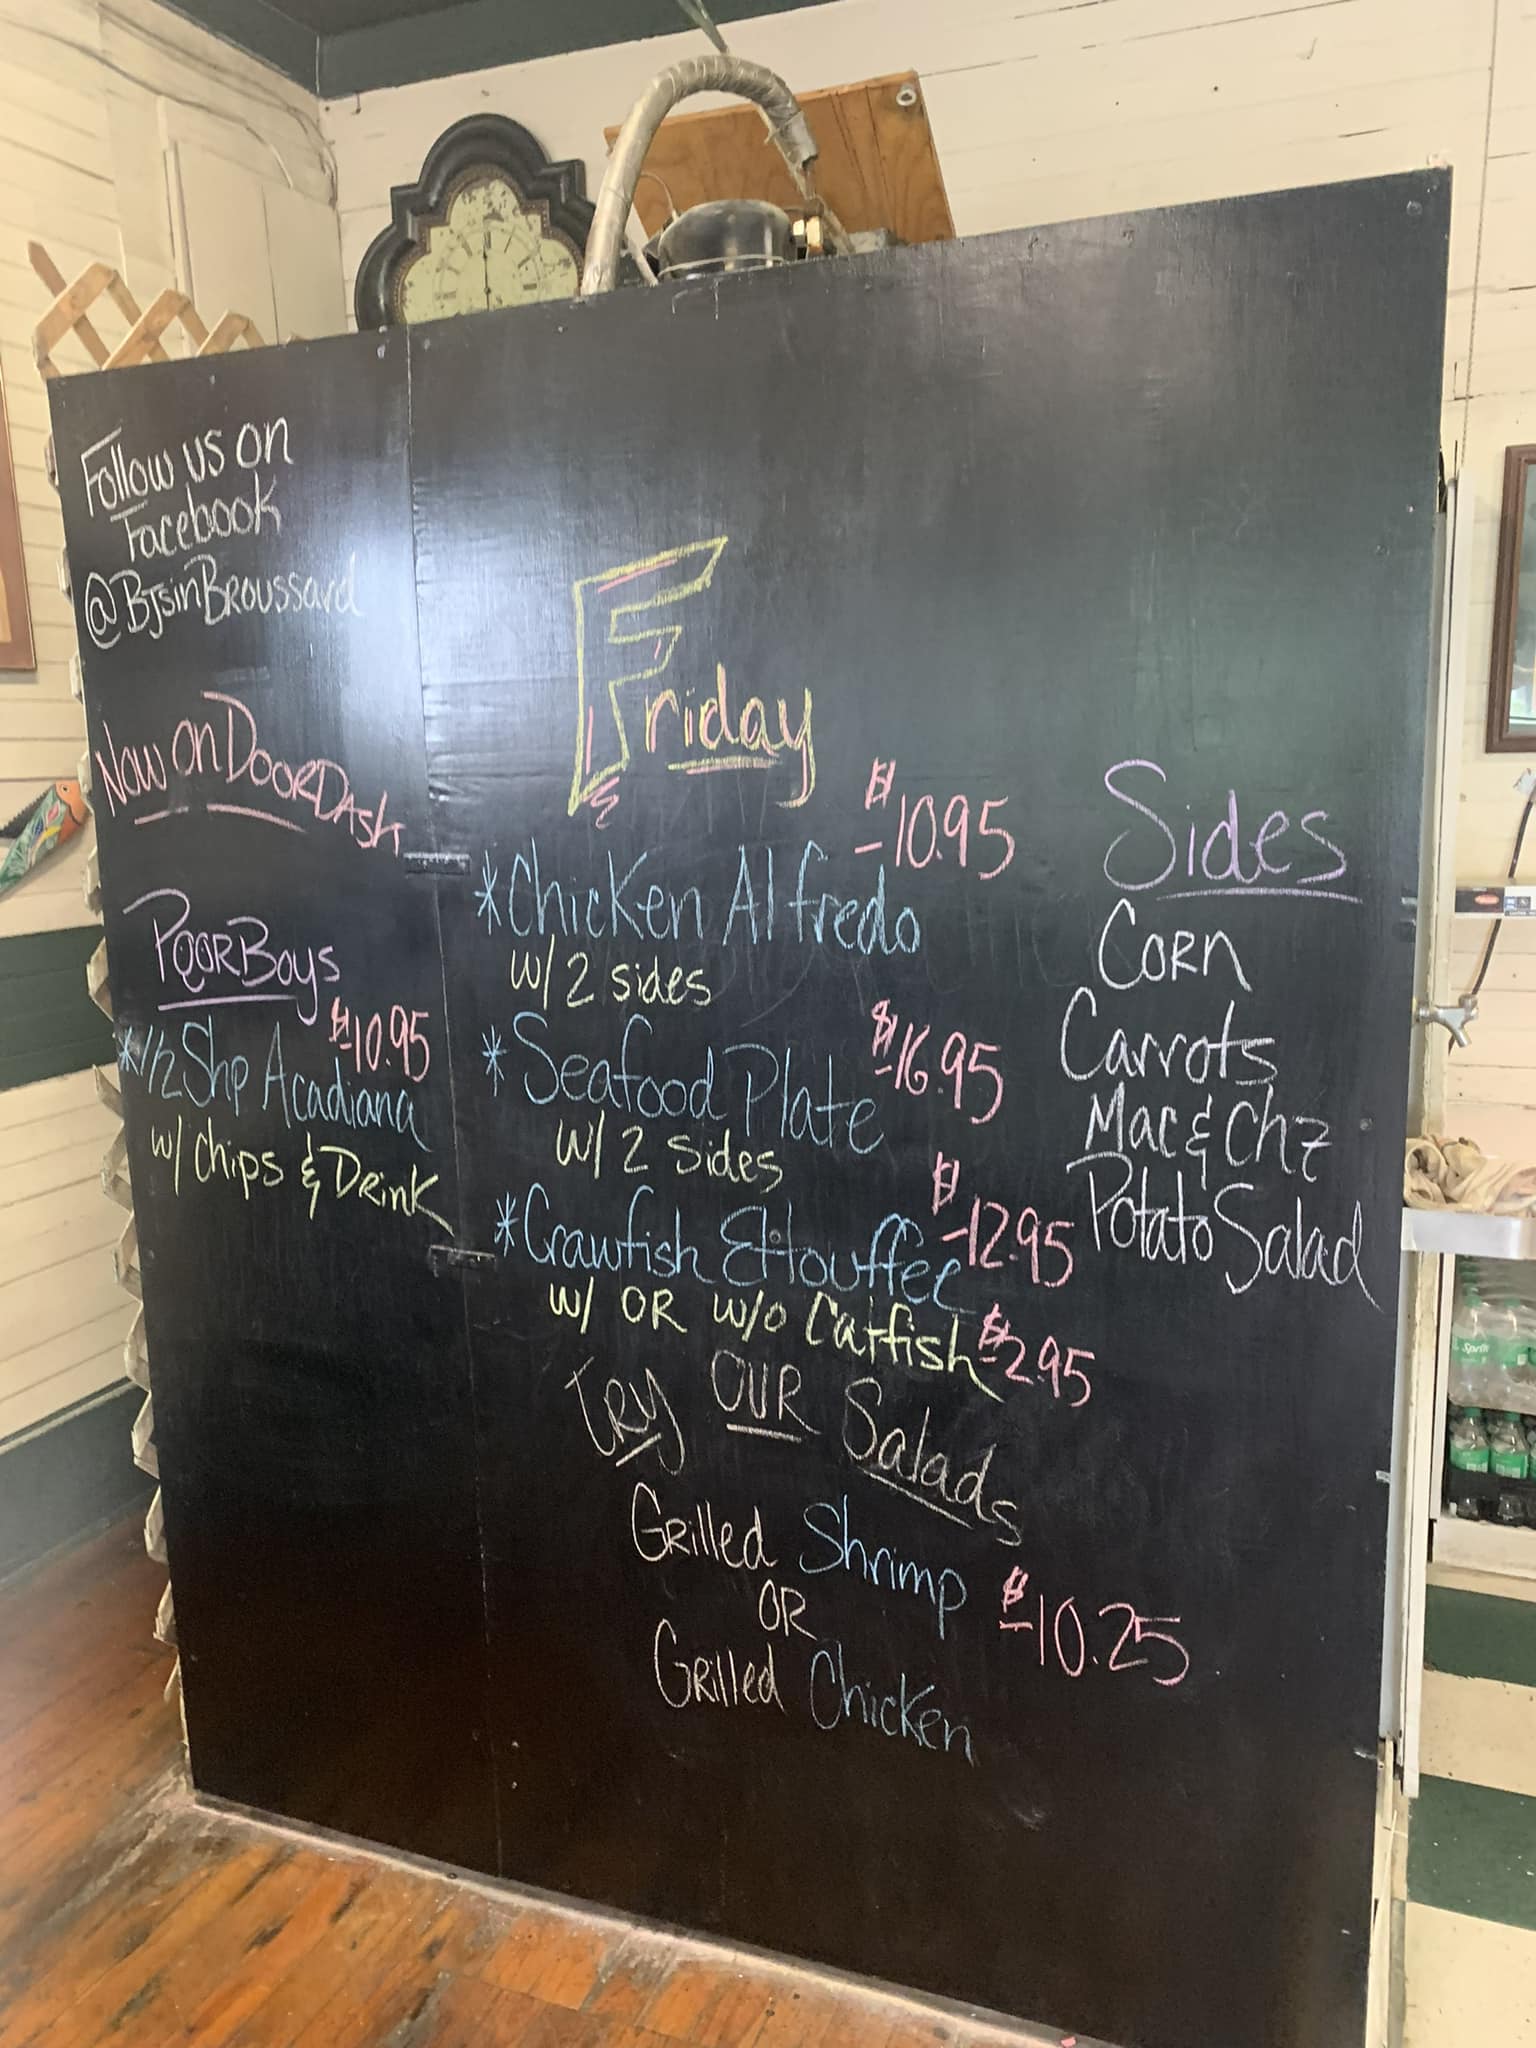 Follow us on
Facebook
@BJsinBroussard
Now on DoorDash
PoorBoys
$10.95
*1/2 Shp Acadiana
w/ chips & Drink
Friday
$10.95
*Chicken Alfredo
w/ 2 sides
$16.95
*Seafood Plate
w/ 2 sides
$12.95
*Crawfish Etouffee
w/ OR w/o Catfish $2.95
Try OUR Salads
Grilled Shrimp
OR
$10.25
Grilled Chicken
Sides
Corn
Carrots
Mac & Chz
Potato Salad
Sprite